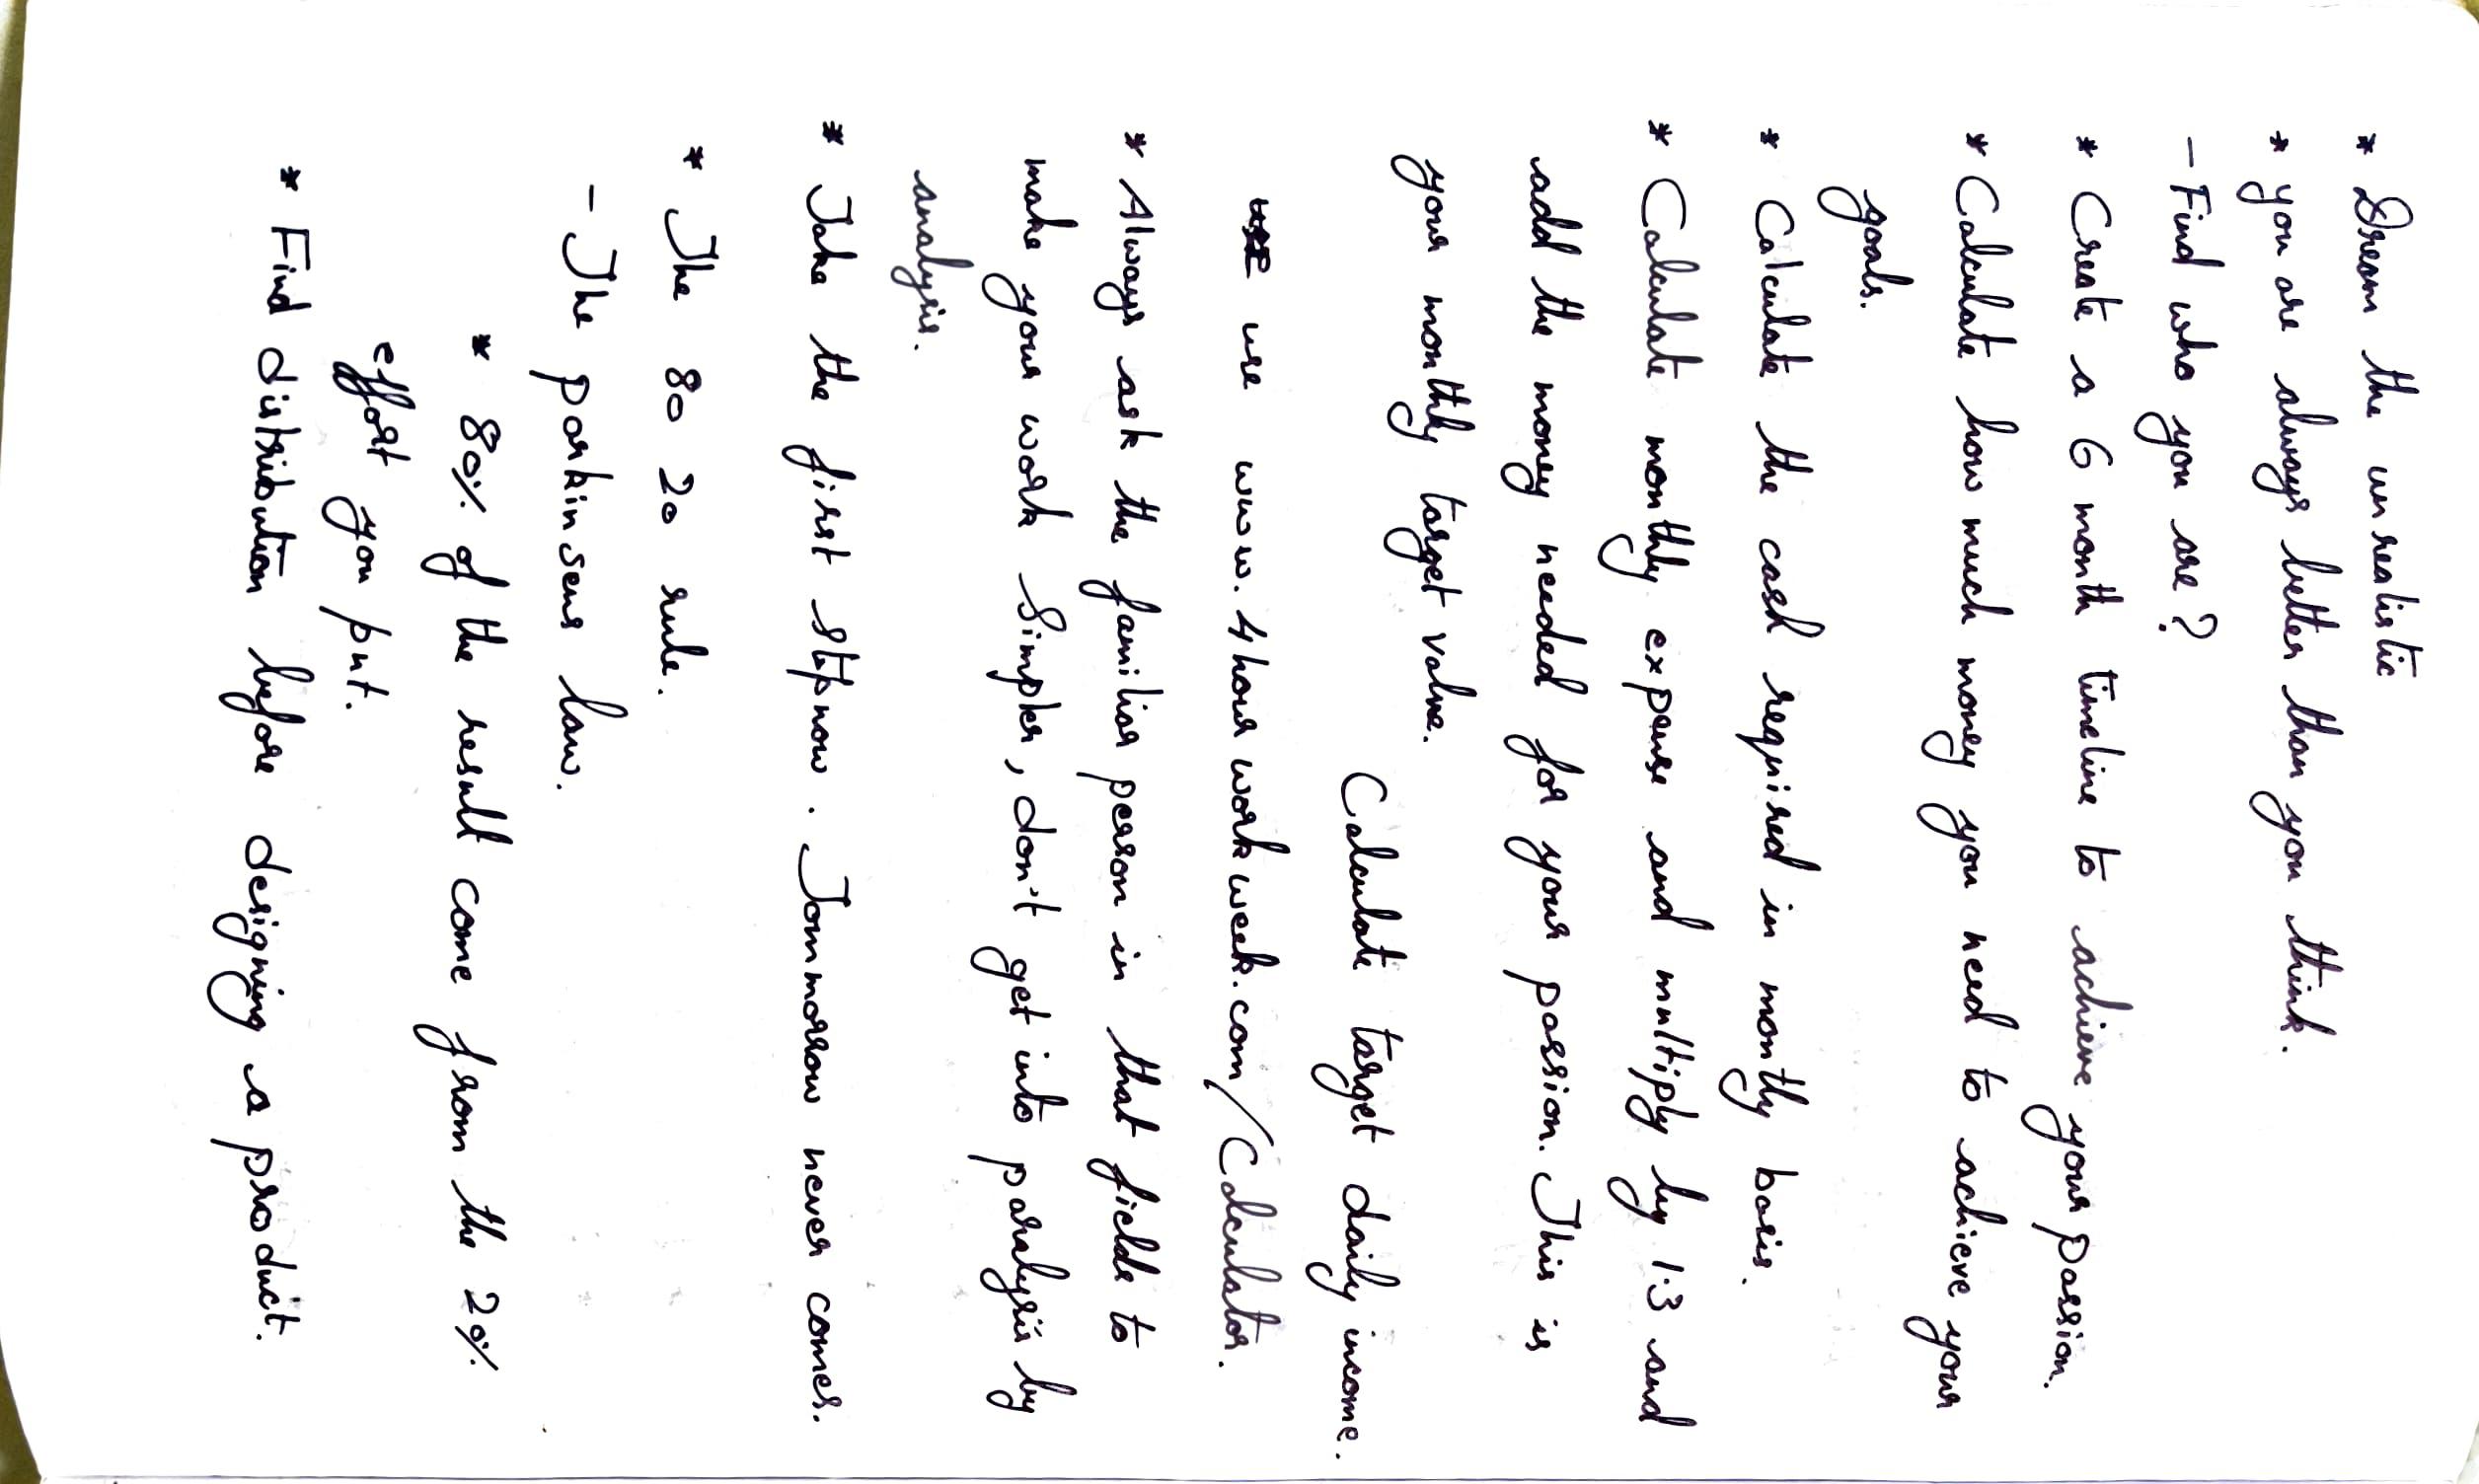 * Dream the unrealistic
* you are always better than you think.
- Find who you are?
* Create a 6 month timeline to achieve your passion.
* Calculate how much money you need to achieve your
goals.
* Calculate the cash required in montly basis.
* Calculate monthly expense and multiply by 1.3 and
add the money needed for your passion. This is
your monthly target value.
Calculate target daily income.
use www.4hourworkweek.com/Calculator.
* Always ask the familiar person in that fields to
make your work Simpler, don't get into paralysis by
analysis.
* Take the first step now. Tommorrow never comes.
* The 80 20 rule.
- The parkinsens law.
* 80% of the result come from the 20%
effort you put.
* Find distribution before designing a product.